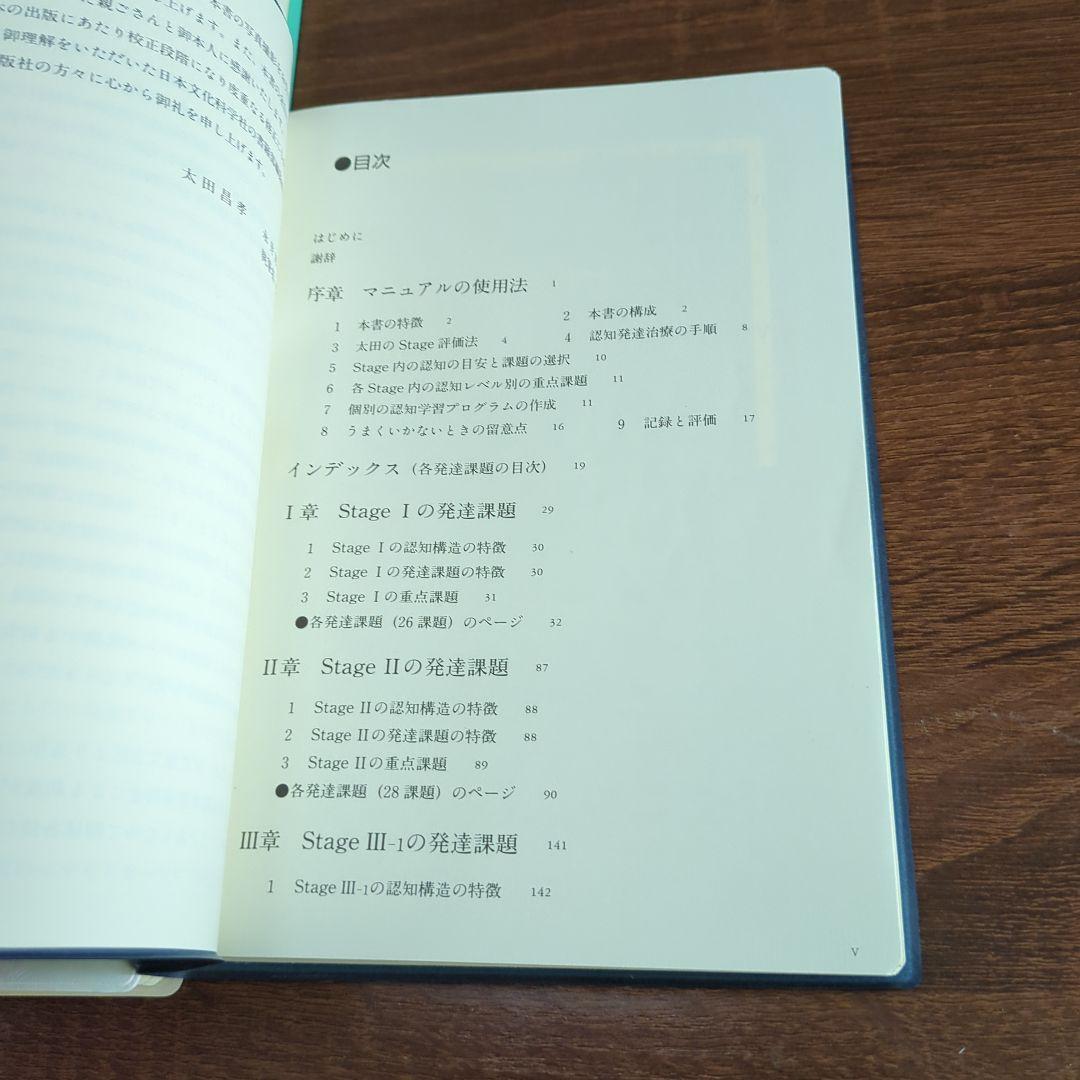 本書の写真撮影
た親ごさんと御本人に感謝いたします
の出版にあたり校正段階になり度重なる
御理解をいただいた日本文化科学社の
版社の方々に心から御礼を申し上げます。
太田昌孝
●目次
はじめに
謝辞
序章 マニュアルの使用法 1
1 本書の特徴 2 2 本書の構成 2
3 太田のStage評価法 4 4 認知発達治療の手順 8
5 Stage内の認知の目安と課題の選択 10
6 各Stage内の認知レベル別の重点課題 11
7 個別の認知学習プログラムの作成 11
8 うまくいかないときの留意点 16 9 記録と評価 17
インデックス(各発達課題の目次) 19
Ⅰ章 Stage Ⅰの発達課題 29
1 Stage Ⅰの認知構造の特徴 30
2 Stage Ⅰの発達課題の特徴 30
3 Stage Ⅰの重点課題 31
●各発達課題(26課題)のページ 32
Ⅱ章 Stage Ⅱの発達課題 87
1 Stage Ⅱの認知構造の特徴 88
2 Stage Ⅱの発達課題の特徴 88
3 Stage Ⅱの重点課題 89
●各発達課題(28課題)のページ 90
Ⅲ章 Stage Ⅲ-1の発達課題 141
1 Stage Ⅲ-1の認知構造の特徴 142
V